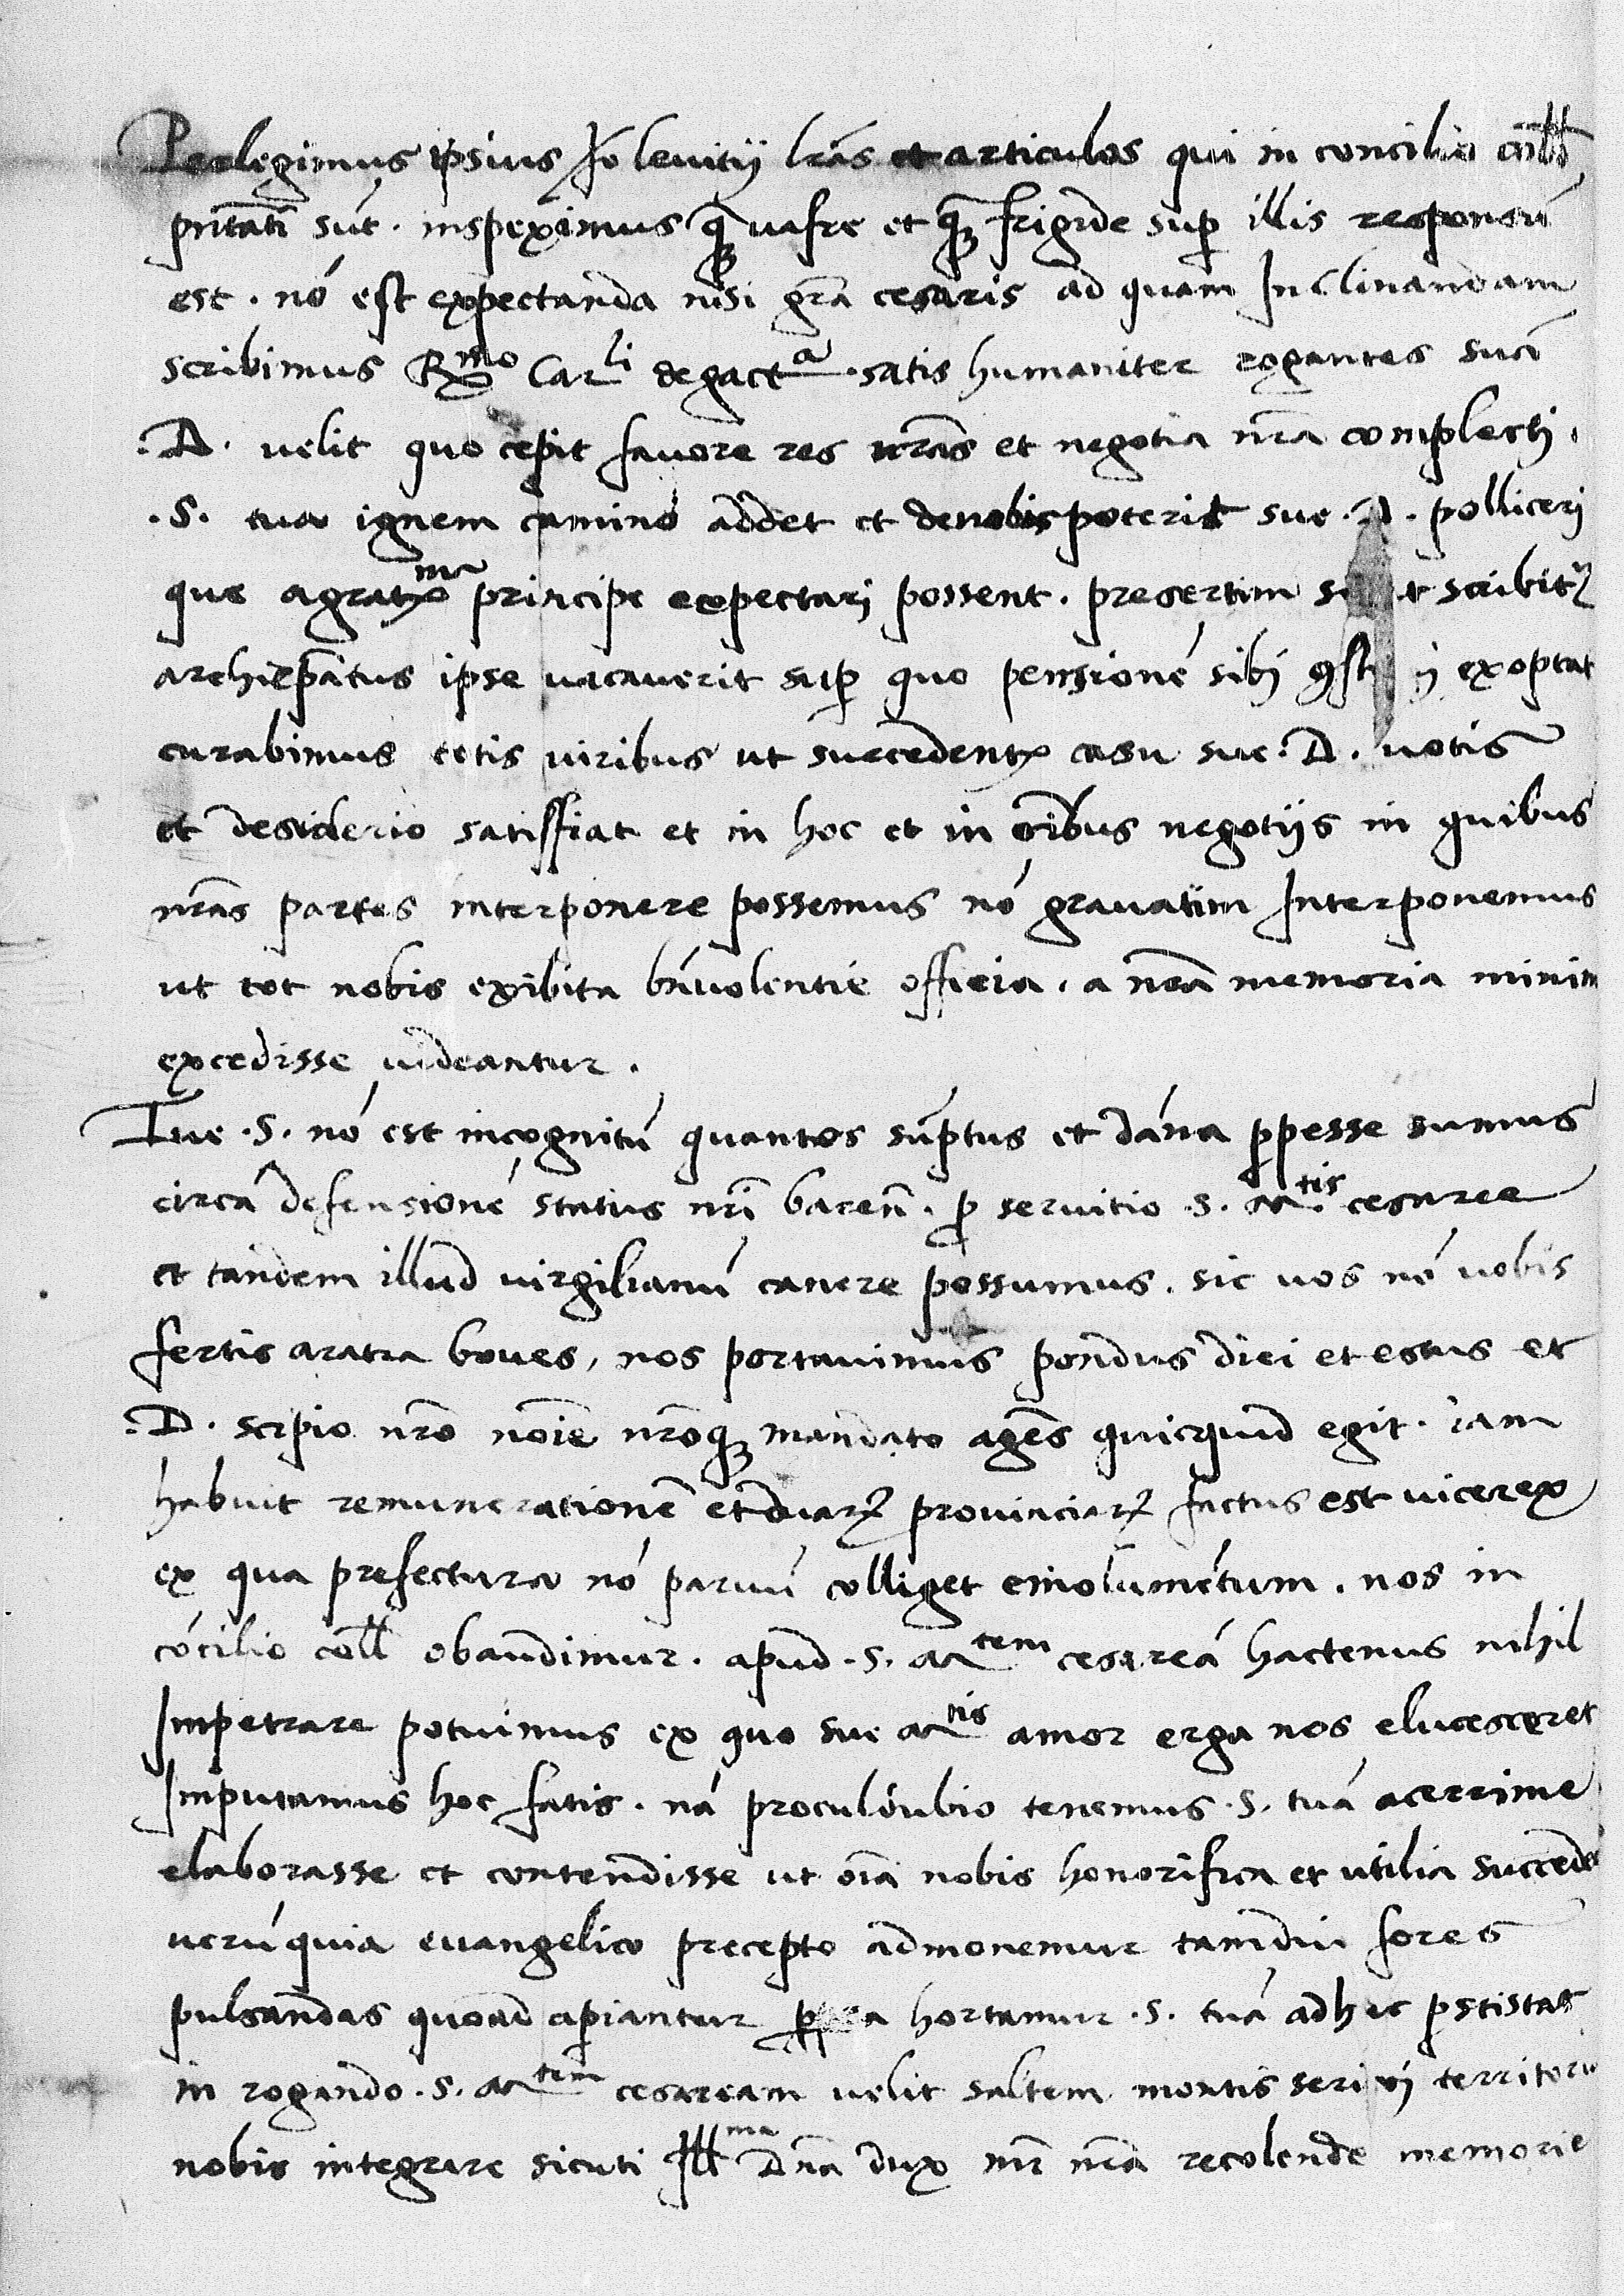 Perlegimus ipsius Jo leuitij lras et articulos qui in concilio coll
pntati sut. inspeximus q̃ uafre et q̃ frigide sup illis responsũ
est. nó est expectanda nisi gra cesaris ad quam Inclinandam
scribimus R.mo Car.li degact.a satis humaniter rogantes suã
.D. uelit quo cepit fauore res nras et negotia nra complecti.
.S. tua ignem camino addet et denobis poterit sue .D. polliceri
que agratx.mo principe expectari possent. presertim si ut scribit
archiepatus ipse uacauerit sup quo pensioné sibi exoptat
curabimus totis uiribus ut succedente casu sue .D. uotis
et desiderio satisfiat et in hoc et in oibus negotijs in quibus
nras partes interponere possemus nó grauatim Interponemus
ut tot nobis exibita bńuolentie officia. a nra memoria minim
excedisse uideantur.
Tue .S. nó est incognitũ quantos sũptus et dána ppesse sumus
circa defensioné status nri baren. p seruitio .S. M.tis cesaree
et tandem illud uirgilianũ canere possumus. sic uos nó uobis
fertis aratra boues, nos portauimus pondus diei et estus et
.D. scipio nro noie nroq mandato agẽs quicquid egit. iam
habuit remunerationẽ et duar prouinciar factus est uicerex
ex qua prefectura nó paruũ colliget emoluméntum. nos in
cócilio coll obaudimur. apud .S. M.tem cesareá hactenus nihil
Impetrare potuimus ex quo sue M.tis amor erga nos elucesceret
Imputamus hoc fatis. ná proculdubio tenemus .S. tuá acerrime
elaborasse et contendisse ut oia nobis honorifica et utilia succede
uerú quia euangelico precepto admonemur tamdiu fores
pulsandas quoad apiantur hortamur .S. tuá adhuc pstistat
in rogando .S. M.tem cesaream uelit saltem montis serici territoriu
nobis integrare sicuti Ill.ma Dna dux mr nra recolende memorie